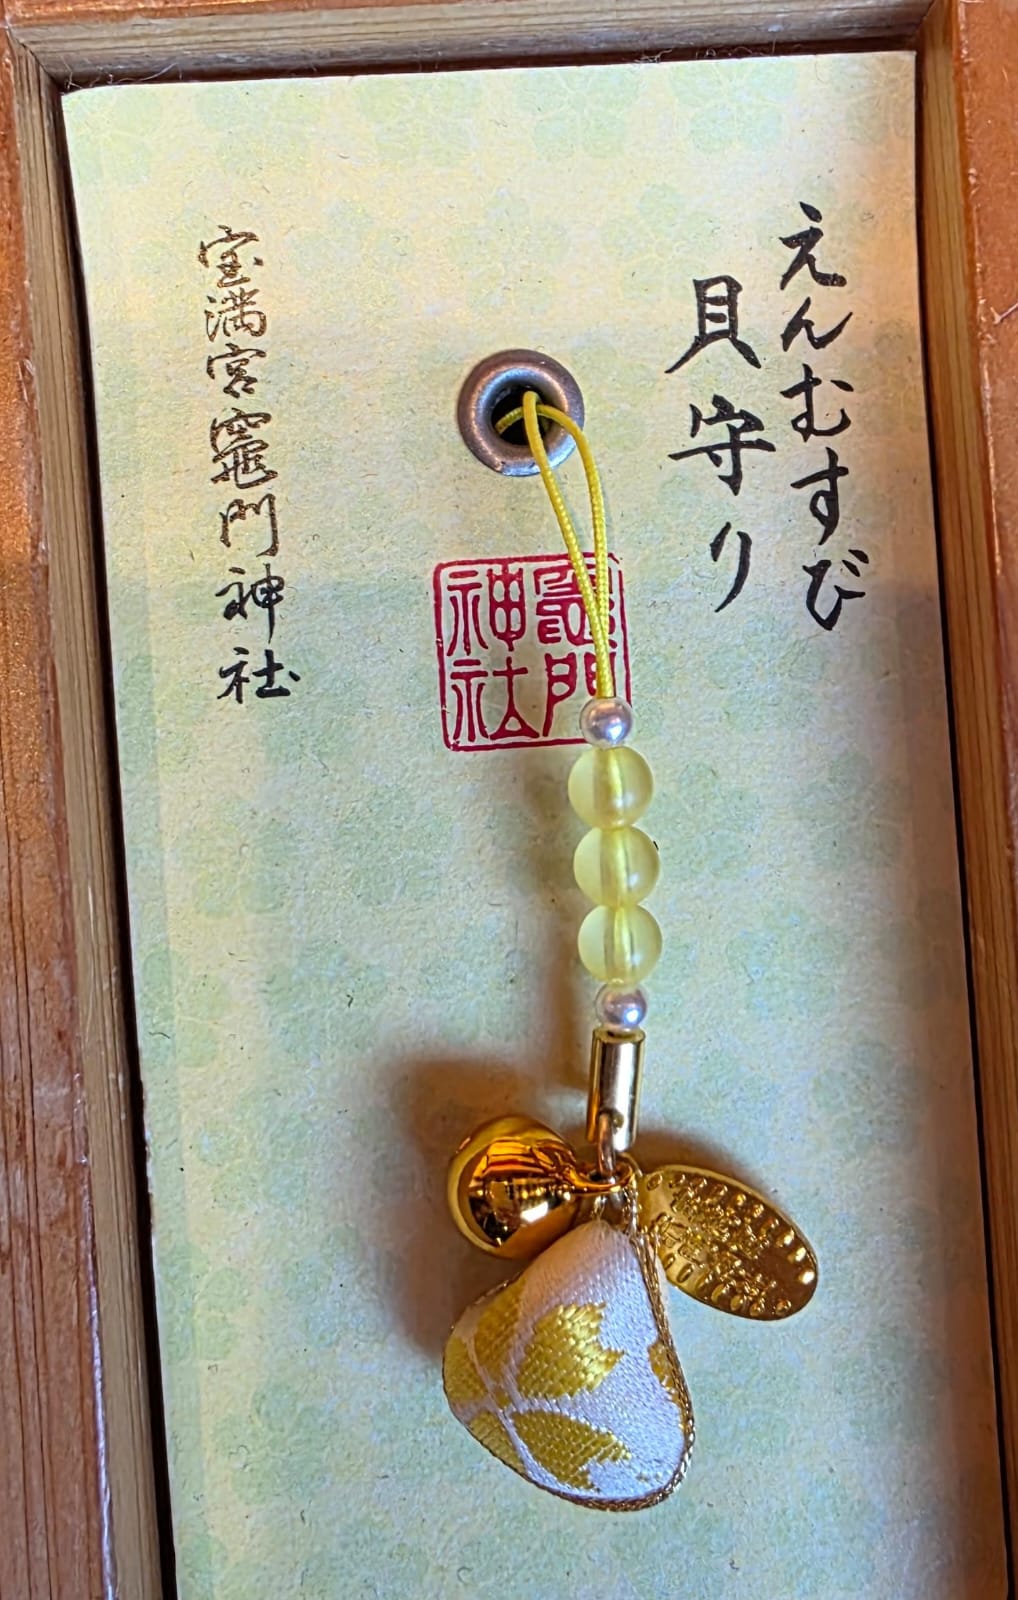 えんむすび
貝守り
竈門
神社
宝満宮竈門神社